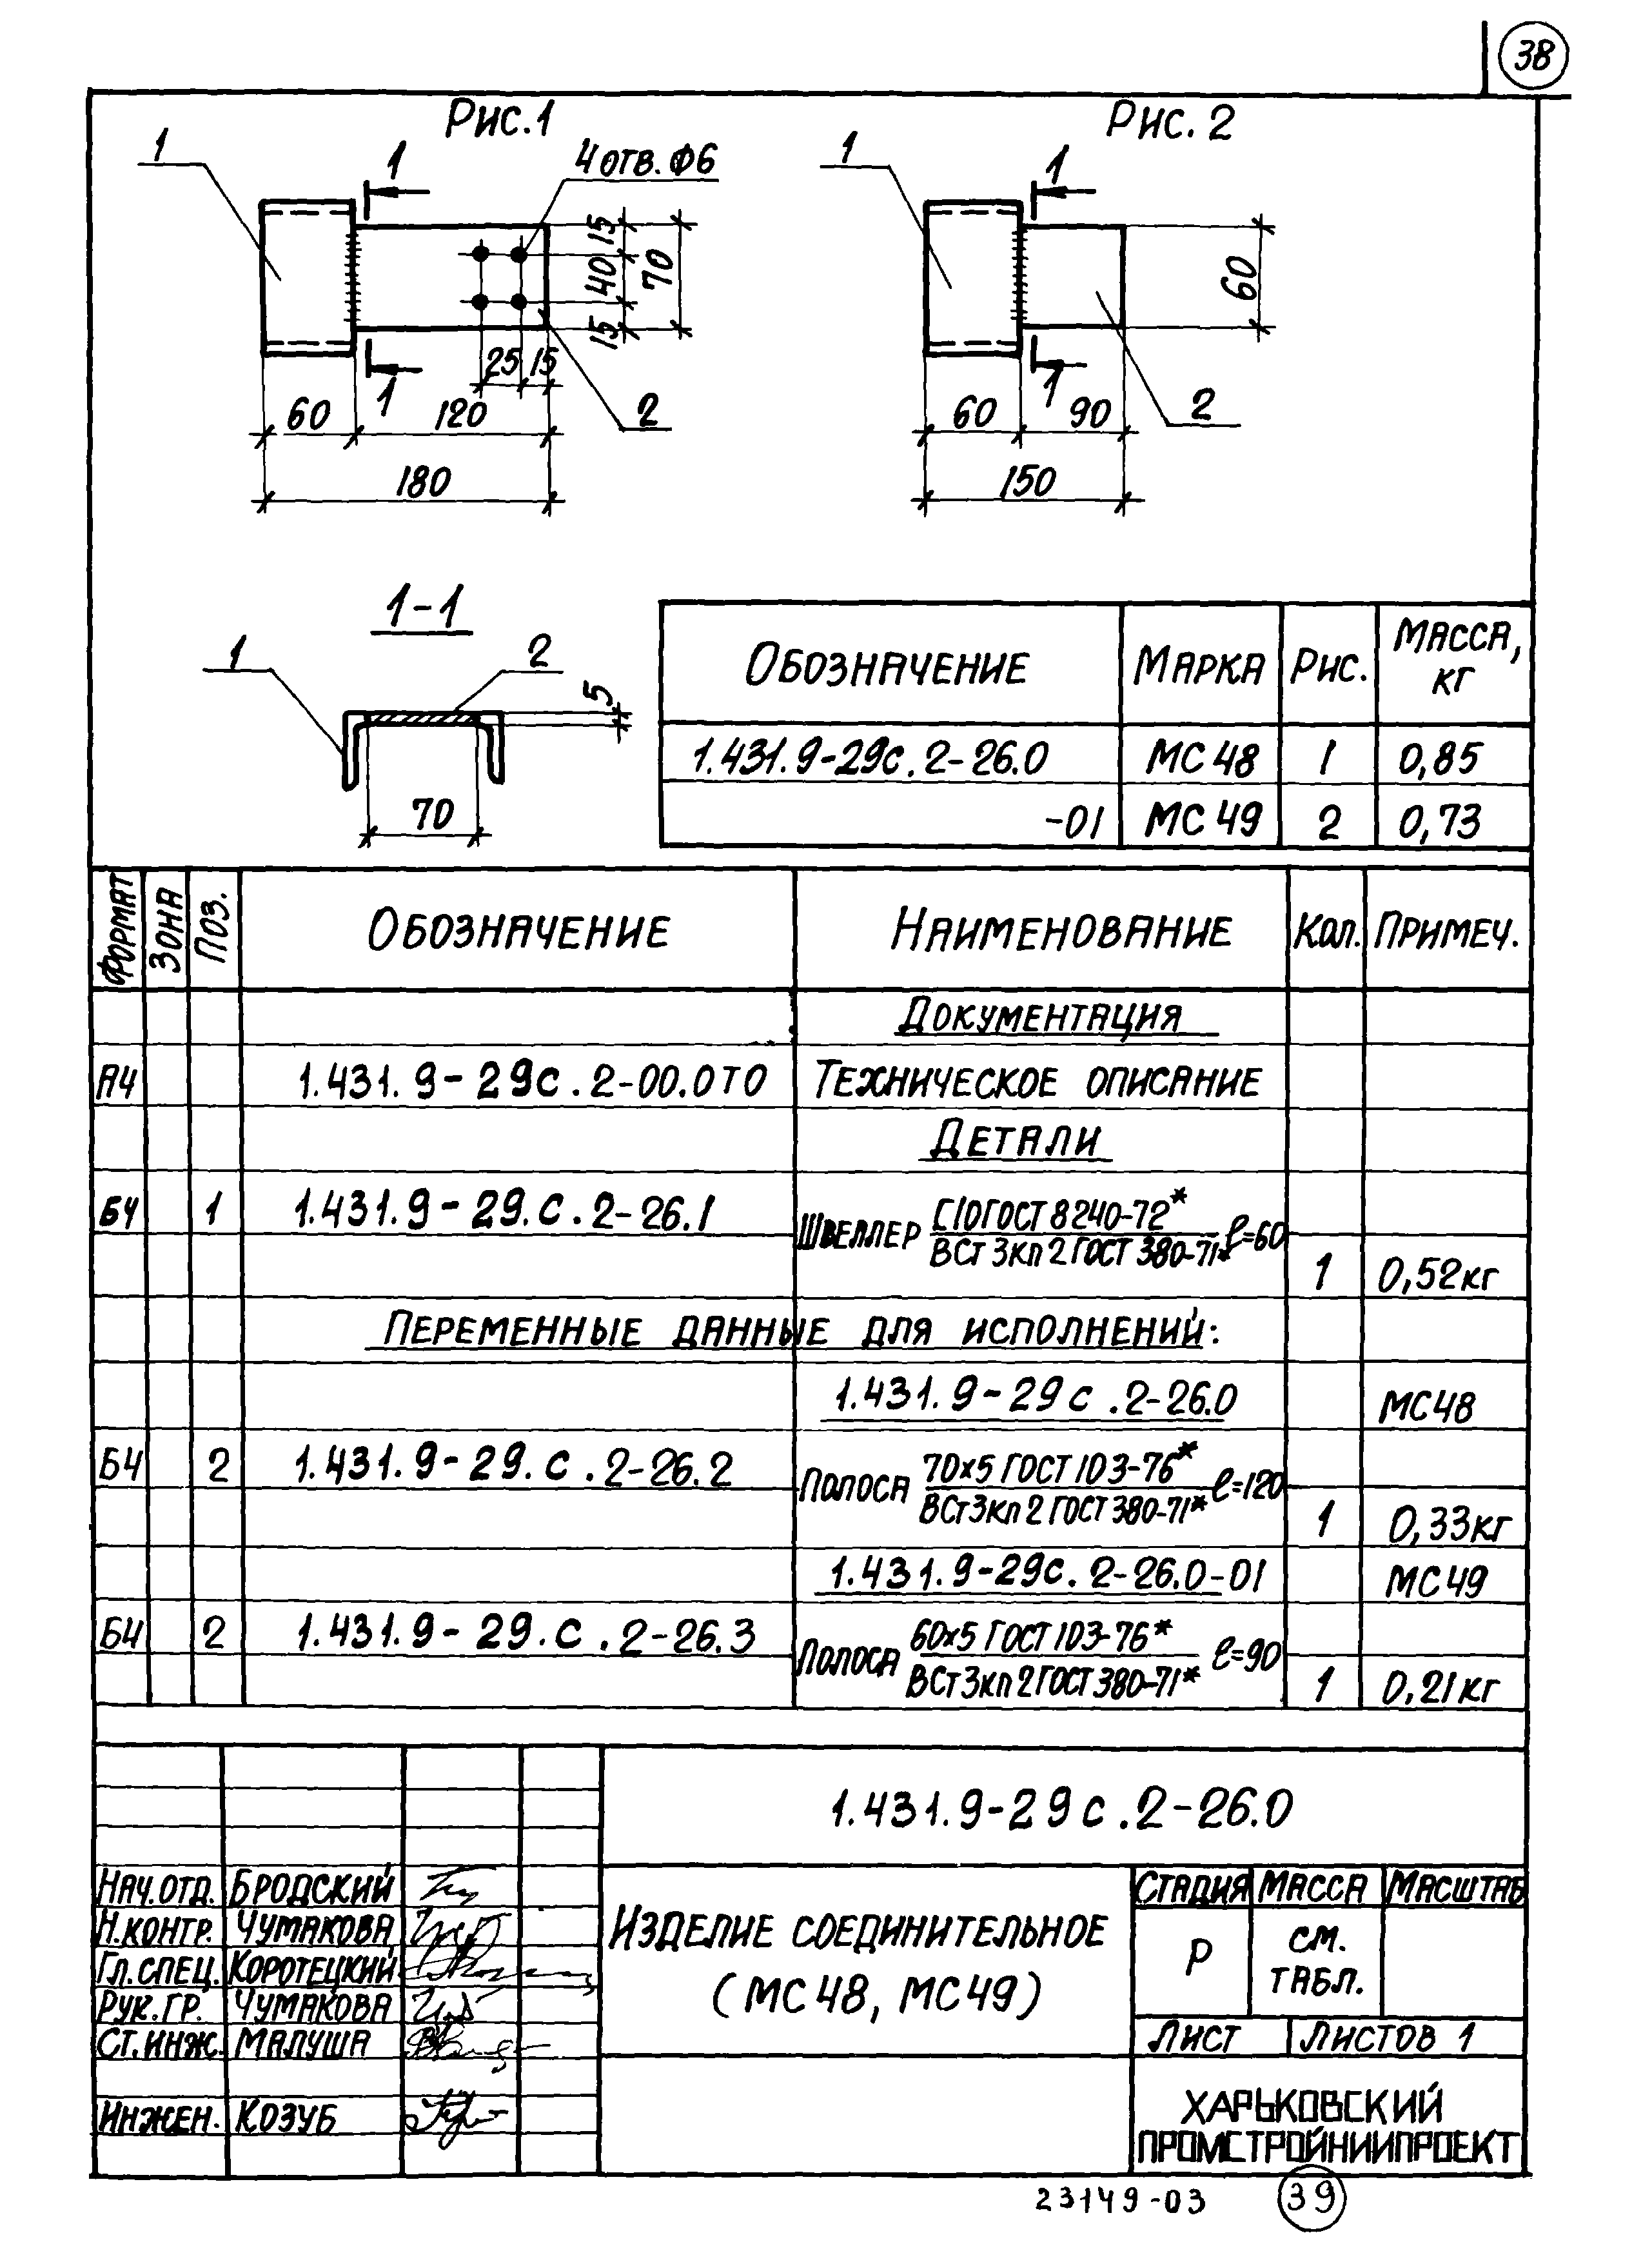 38
Рис.1
Рис. 2
1
1
4 отв. Ф6
15
40
70
15
25
15
1
2
60
120
180
1
1
60
1
2
60
90
150
1-1
1
2
5
70
Обозначение Марка Рис. Масса, кг
1.431.9-29с.2-26.0 МС 48 1 0,85
-01 МС 49 2 0,73
Формат Зона Поз. Обозначение Наименование Кол. Примеч.
Документация
А4 1.431.9-29с.2-00.0ТО Техническое описание
Детали
Б4 1 1.431.9-29.с.2-26.1 Швеллер С10 ГОСТ 8240-72* ℓ=60
ВСт 3кп 2 ГОСТ 380-71*
1 0,52кг
Переменные данные для исполнений:
1.431.9-29с.2-26.0 МС48
Б4 2 1.431.9-29.с.2-26.2 Полоса 70х5 ГОСТ 103-76* ℓ=120
ВСт3кп 2 ГОСТ 380-71*
1 0,33кг
1.431.9-29с.2-26.0-01 МС49
Б4 2 1.431.9-29.с.2-26.3 Полоса 60х5 ГОСТ 103-76* ℓ=90
ВСт3кп 2 ГОСТ 380-71*
1 0,21кг
1.431.9-29с.2-26.0
Нач.отд. Бродский
Н.контр. Чумакова
Гл.спец. Коротецкий
Рук.гр. Чумакова
Ст.инж. Малуша
Инжен. Козуб
Изделие соединительное
(МС48, МС49)
Стадия Масса Масштаб
Р см. табл.
Лист Листов 1
ХАРЬКОВСКИЙ
ПРОМСТРОЙНИИПРОЕКТ
23149-03
39